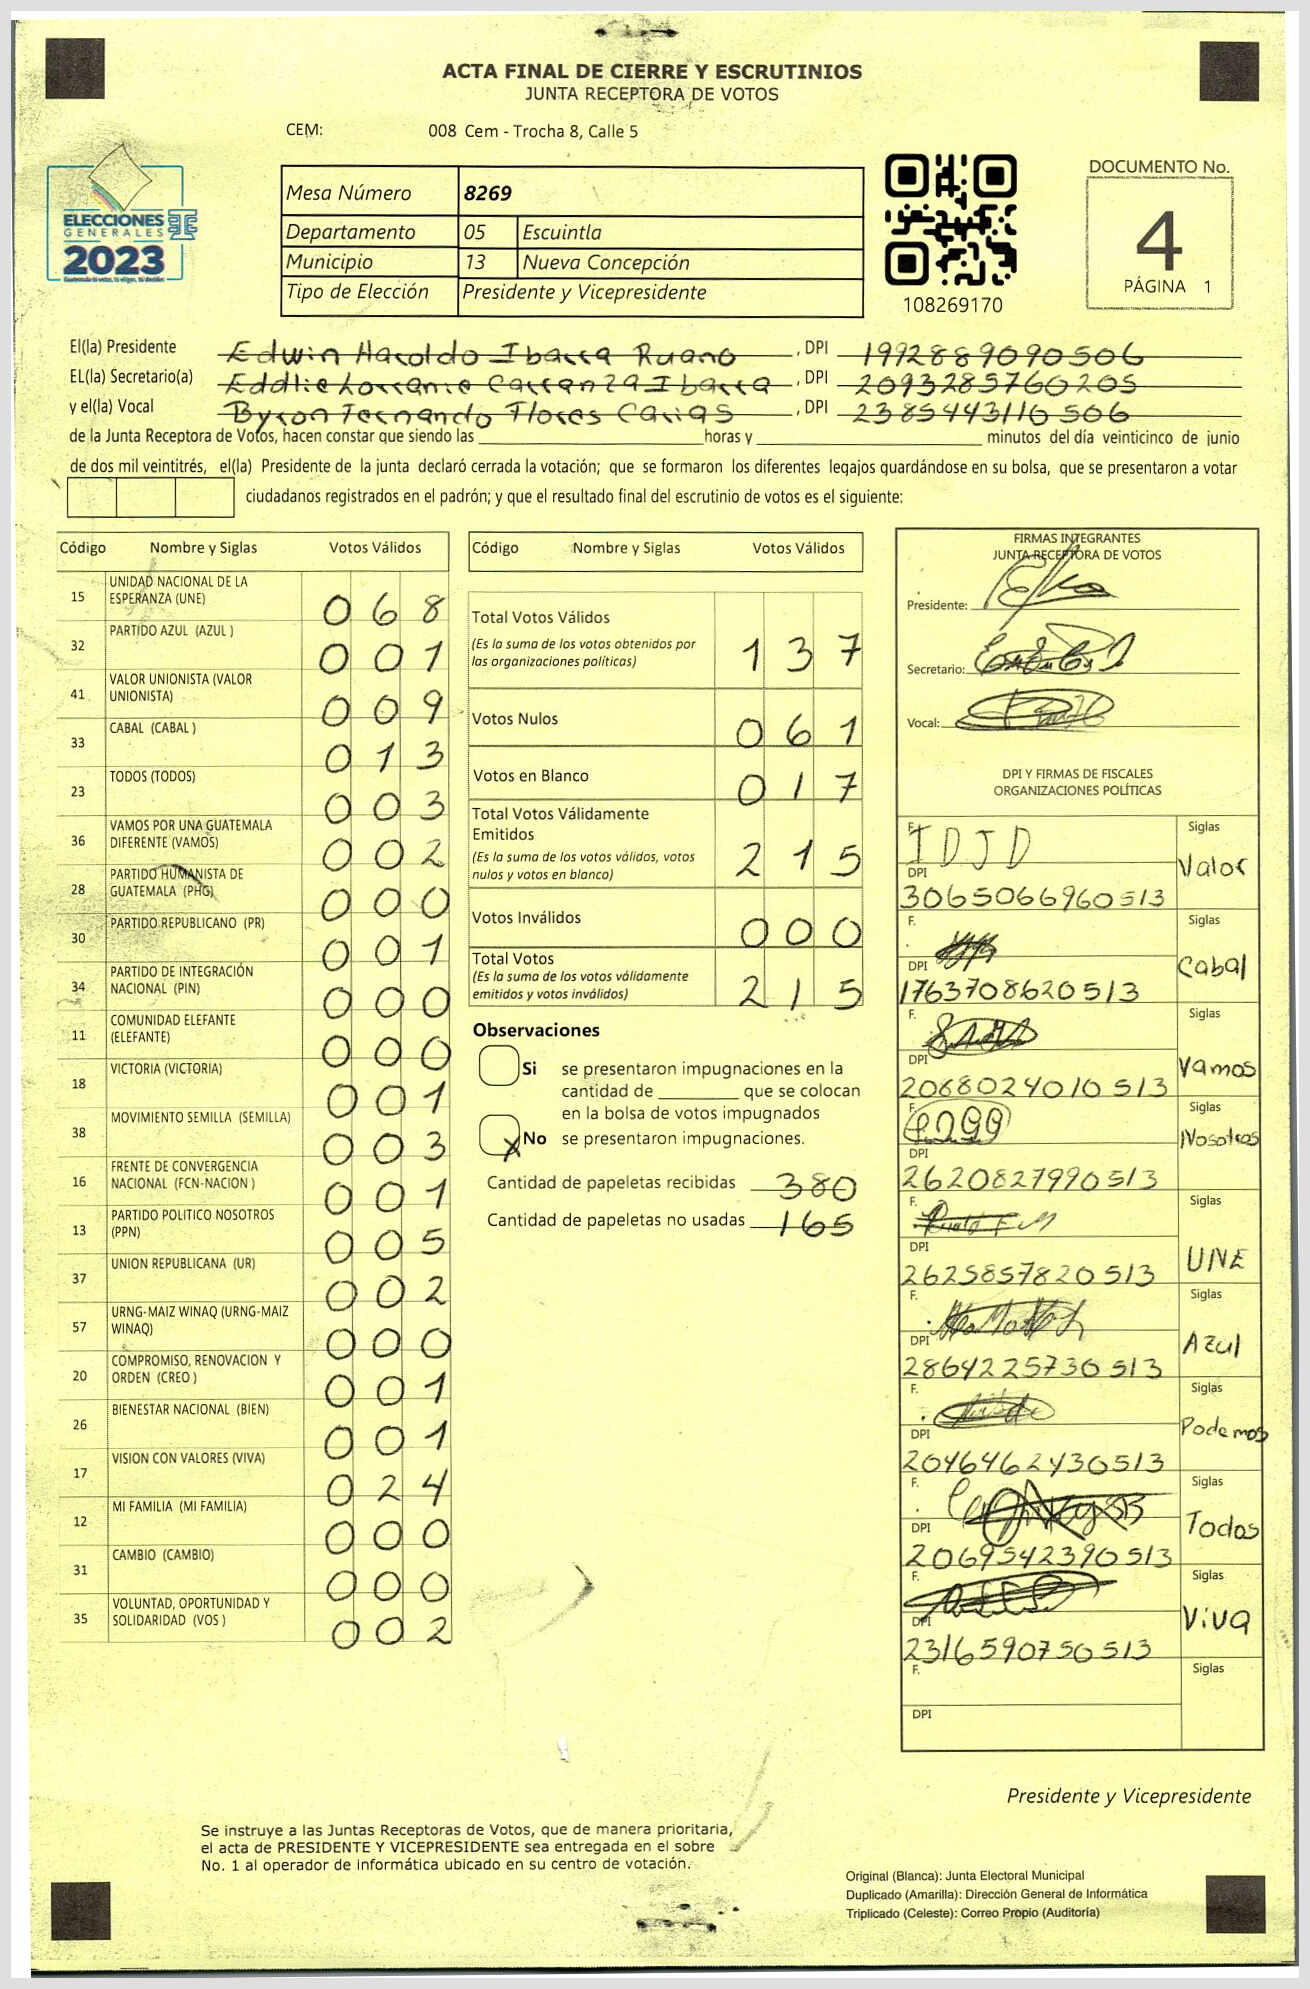 ACTA FINAL DE CIERRE Y ESCRUTINIOS
JUNTA RECEPTORA DE VOTOS
CEM: 008 Cem - Trocha 8, Calle 5
ELECCIONES
GENERALES
2023
Mesa Número 8269
Departamento 05 Escuintla
Municipio 13 Nueva Concepción
Tipo de Elección Presidente y Vicepresidente
108269170
DOCUMENTO No.
4
PÁGINA 1
El(la) Presidente Edwin Haroldo Ibarra Ruano , DPI 1992889090506
EL(la) Secretario(a) Eddlie Lorranie Carranza Ibarra , DPI 2093285760205
y el(la) Vocal Byron Fernando Flores Carias , DPI 2385443110506
de la Junta Receptora de Votos, hacen constar que siendo las horas y minutos del día veinticinco de junio
de dos mil veintitrés, el(la) Presidente de la junta declaró cerrada la votación; que se formaron los diferentes legajos guardándose en su bolsa, que se presentaron a votar
ciudadanos registrados en el padrón; y que el resultado final del escrutinio de votos es el siguiente:
Código Nombre y Siglas Votos Válidos
15 UNIDAD NACIONAL DE LA ESPERANZA (UNE) 068
32 PARTIDO AZUL (AZUL ) 001
41 VALOR UNIONISTA (VALOR UNIONISTA) 009
33 CABAL (CABAL ) 013
23 TODOS (TODOS) 003
36 VAMOS POR UNA GUATEMALA DIFERENTE (VAMOS) 002
28 PARTIDO HUMANISTA DE GUATEMALA (PHG) 000
30 PARTIDO REPUBLICANO (PR) 001
34 PARTIDO DE INTEGRACIÓN NACIONAL (PIN) 000
11 COMUNIDAD ELEFANTE (ELEFANTE) 000
18 VICTORIA (VICTORIA) 001
38 MOVIMIENTO SEMILLA (SEMILLA) 003
16 FRENTE DE CONVERGENCIA NACIONAL (FCN-NACION ) 001
13 PARTIDO POLITICO NOSOTROS (PPN) 005
37 UNION REPUBLICANA (UR) 002
57 URNG-MAIZ WINAQ (URNG-MAIZ WINAQ) 000
20 COMPROMISO, RENOVACION Y ORDEN (CREO ) 001
26 BIENESTAR NACIONAL (BIEN) 001
17 VISION CON VALORES (VIVA) 024
12 MI FAMILIA (MI FAMILIA) 000
31 CAMBIO (CAMBIO) 000
35 VOLUNTAD, OPORTUNIDAD Y SOLIDARIDAD (VOS ) 002
Código Nombre y Siglas Votos Válidos
Total Votos Válidos
(Es la suma de los votos obtenidos por
las organizaciones políticas) 137
Votos Nulos 061
Votos en Blanco 017
Total Votos Válidamente
Emitidos
(Es la suma de los votos válidos, votos
nulos y votos en blanco) 215
Votos Inválidos 000
Total Votos
(Es la suma de los votos válidamente
emitidos y votos inválidos) 215
Observaciones
Si se presentaron impugnaciones en la
cantidad de que se colocan
en la bolsa de votos impugnados
X No se presentaron impugnaciones.
Cantidad de papeletas recibidas 380
Cantidad de papeletas no usadas 165
FIRMAS INTEGRANTES
JUNTA RECEPTORA DE VOTOS
Presidente:
Secretario:
Vocal:
DPI Y FIRMAS DE FISCALES
ORGANIZACIONES POLÍTICAS
F. IDJD Siglas
DPI Valor
3065066960513
F. Siglas
DPI Cabal
1763708620513
F. Siglas
DPI Vamos
2068024010513
F. Siglas
DPI Nosotros
2620827990513
F. Siglas
DPI UNE
2625857820513
F. Siglas
DPI Azul
2864225730513
F. Siglas
DPI Podemos
2046462430513
F. Siglas
DPI Todos
2069542390513
F. Siglas
DPI Viva
2316590750513
F. Siglas
DPI
Presidente y Vicepresidente
Se instruye a las Juntas Receptoras de Votos, que de manera prioritaria,
el acta de PRESIDENTE Y VICEPRESIDENTE sea entregada en el sobre
No. 1 al operador de informática ubicado en su centro de votación.
Original (Blanca): Junta Electoral Municipal
Duplicado (Amarilla): Dirección General de Informática
Triplicado (Celeste): Correo Propio (Auditoría)